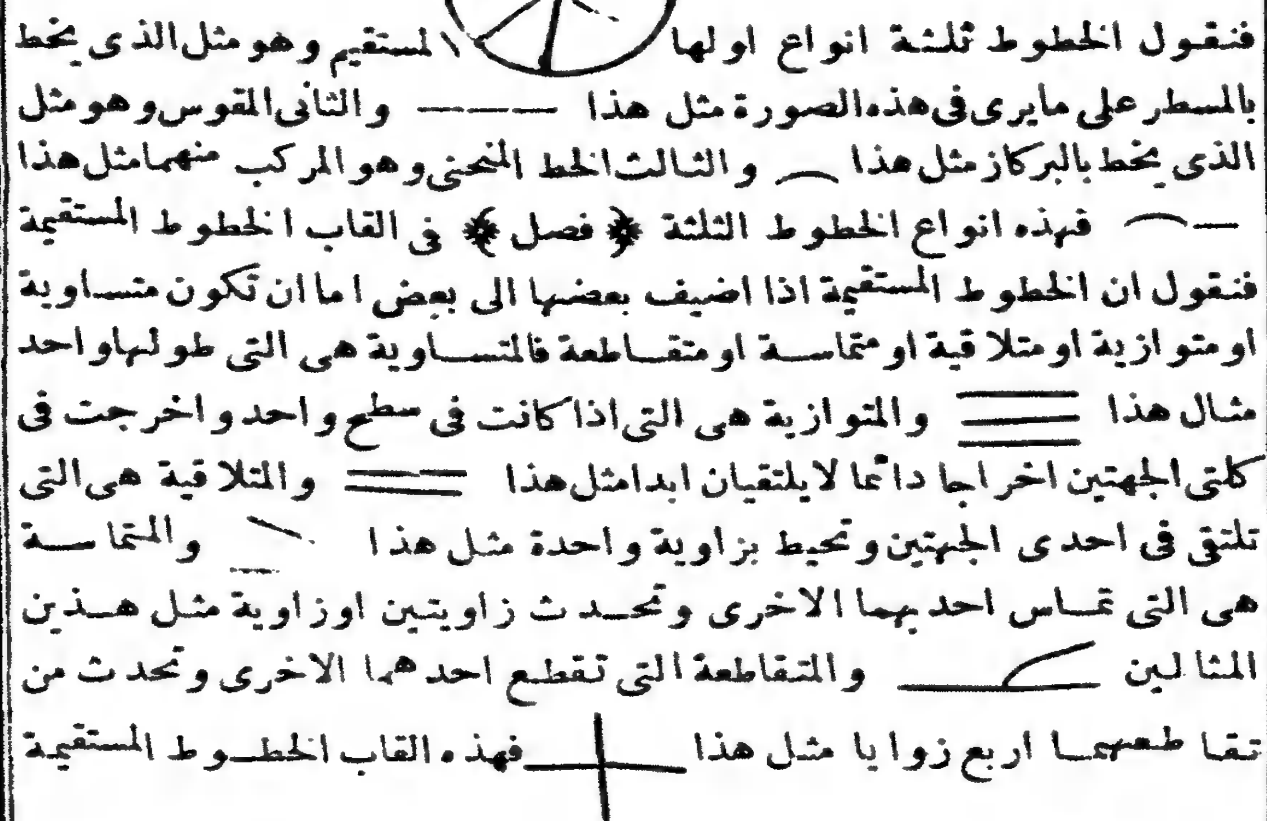 فنقول الخطوط ثلثة انواع اولها المستقيم وهو مثل الذى يخط
بالمسطر على مايرى فى هذه الصورة مثل هذا والثانى المقوس وهو مثل
الذى يخط بالبركاز مثل هذا والثالث الخط المنحنى وهو المركب منهما مثل هذا
فهذه انواع الخطوط الثلثة ﴿ فصل ﴾ فى القاب الخطوط المستقيمة
فنقول ان الخطوط المستقيمة اذا اضيف بعضها الى بعض اما ان تكون متساوية
او متوازية او متلاقية او متماسة او متقاطعة فالمتساوية هى التى طولها واحد
مثال هذا والمتوازية هى التى اذا كانت فى سطح واحد واخرجت فى
كلتى الجهتين اخراجا دائما لايلتقيان ابدا مثل هذا والمتلاقية هى التى
تلتقى فى احدى الجهتين وتحيط بزاوية واحدة مثل هذا والمتماسة
هى التى تماس احديهما الاخرى وتحدث زاويتين اوزاوية مثل هذين
المثالين والمتقاطعة التى تقطع احدهما الاخرى وتحدث من
تقاطعهما اربع زوايا مثل هذا فهذه القاب الخطوط المستقيمة